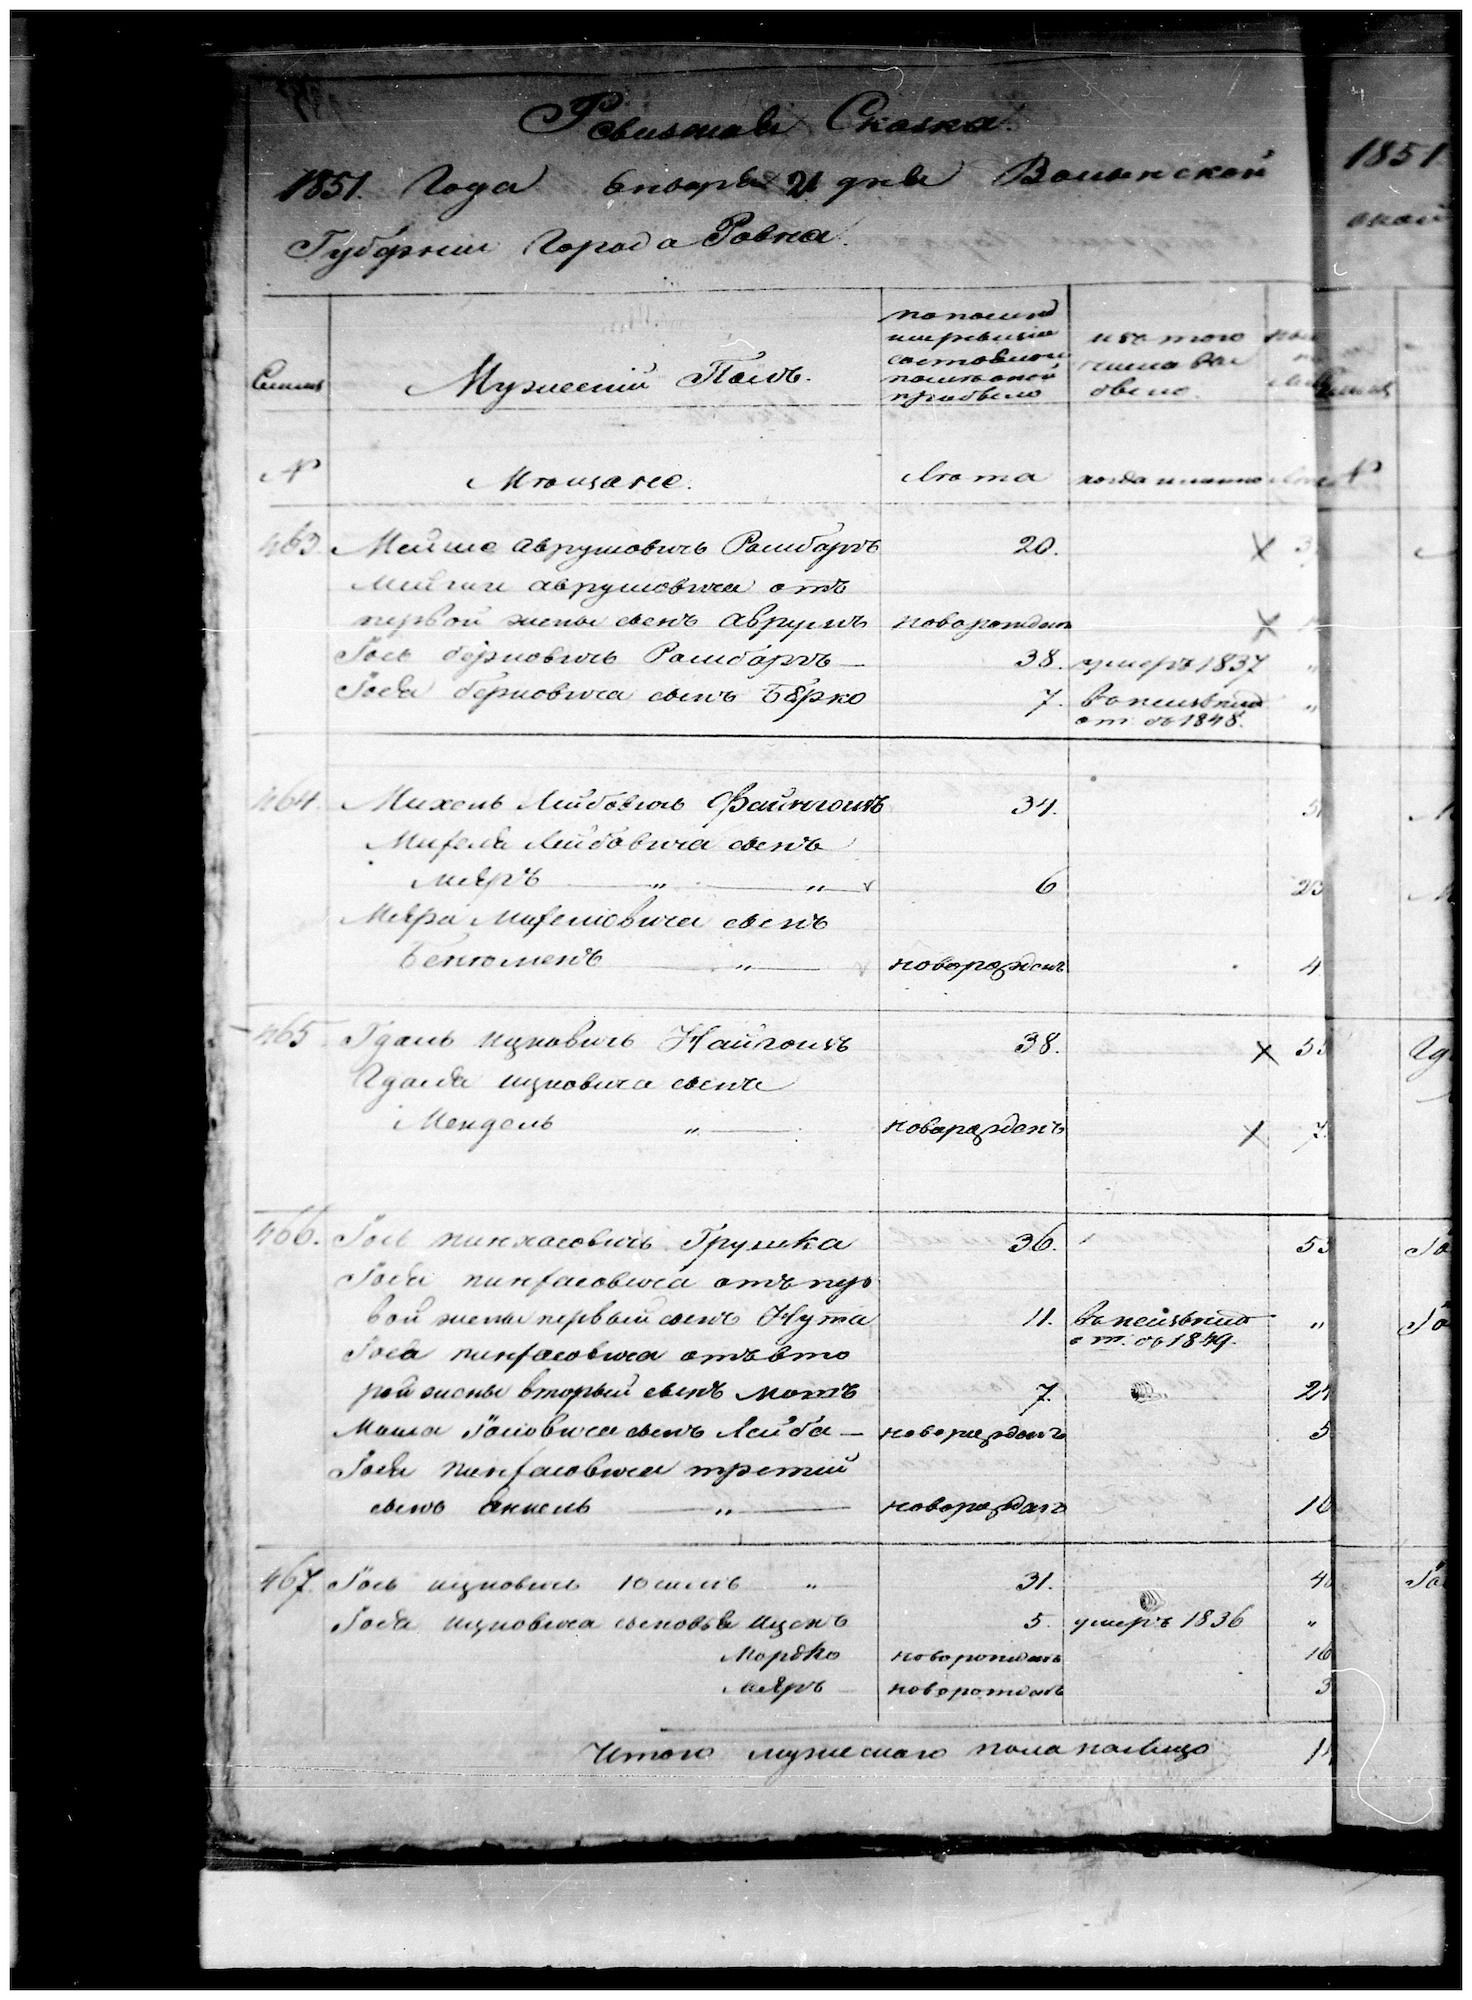 Ревизская Сказка.
1851. Года Января 21 дня Волынской
Губерніи Города Ровна.
1851
ской
Семьи
Мужескій Полъ.
по послед
ней ревизіи
состояло и
после оной
прибыло
изъ того
числа вы
было.
№
Мѣщане.
Лѣта
когда именно
Лѣта
№
463. Мейше Аврумовичъ Ройтбаргъ 20.
Мейши Аврумовича отъ
первой жены сынъ Аврумъ новорожденъ
Гось Берковичъ Ройтбаргъ 38. умеръ 1837 "
Гося Берковича сынъ Берко 7. въ неизвѣстн "
от. съ 1848.
464. Михель Лейбовичъ Файнгольцъ 34. 5
Михеля Лейбовича сынъ
Меяръ " " 6 23
Меяра Михелевича сынъ
Бенюменъ " новорожденъ 4
465 Гдаль Ицковичъ Найгольцъ 38. 55
Гдаля Ицковича сынъ
Мендель " новорожденъ 7.
466. Гось Пинхасовичъ Грушка 36. 53
Гося Пинхасовича отъ пер
вой жены первый сынъ Нута 11. въ неизвѣстн "
от. съ 1849.
Гося Пинхасовича отъ вто
рой жены вторый сынъ Мотъ 7. 24
Моша Госиовича сынъ Лейба новорожденъ 5
Гося Пинхасовича третій
сынъ Янкель " новорожденъ 16
467. Гось Ицковичъ " 31.
Гося Ицковича сыновья Ицекъ 5. умеръ 1836 "
Мордко новорожденъ 16
Меяръ новорожденъ 3
Итого мужескаго пола на лицо 14